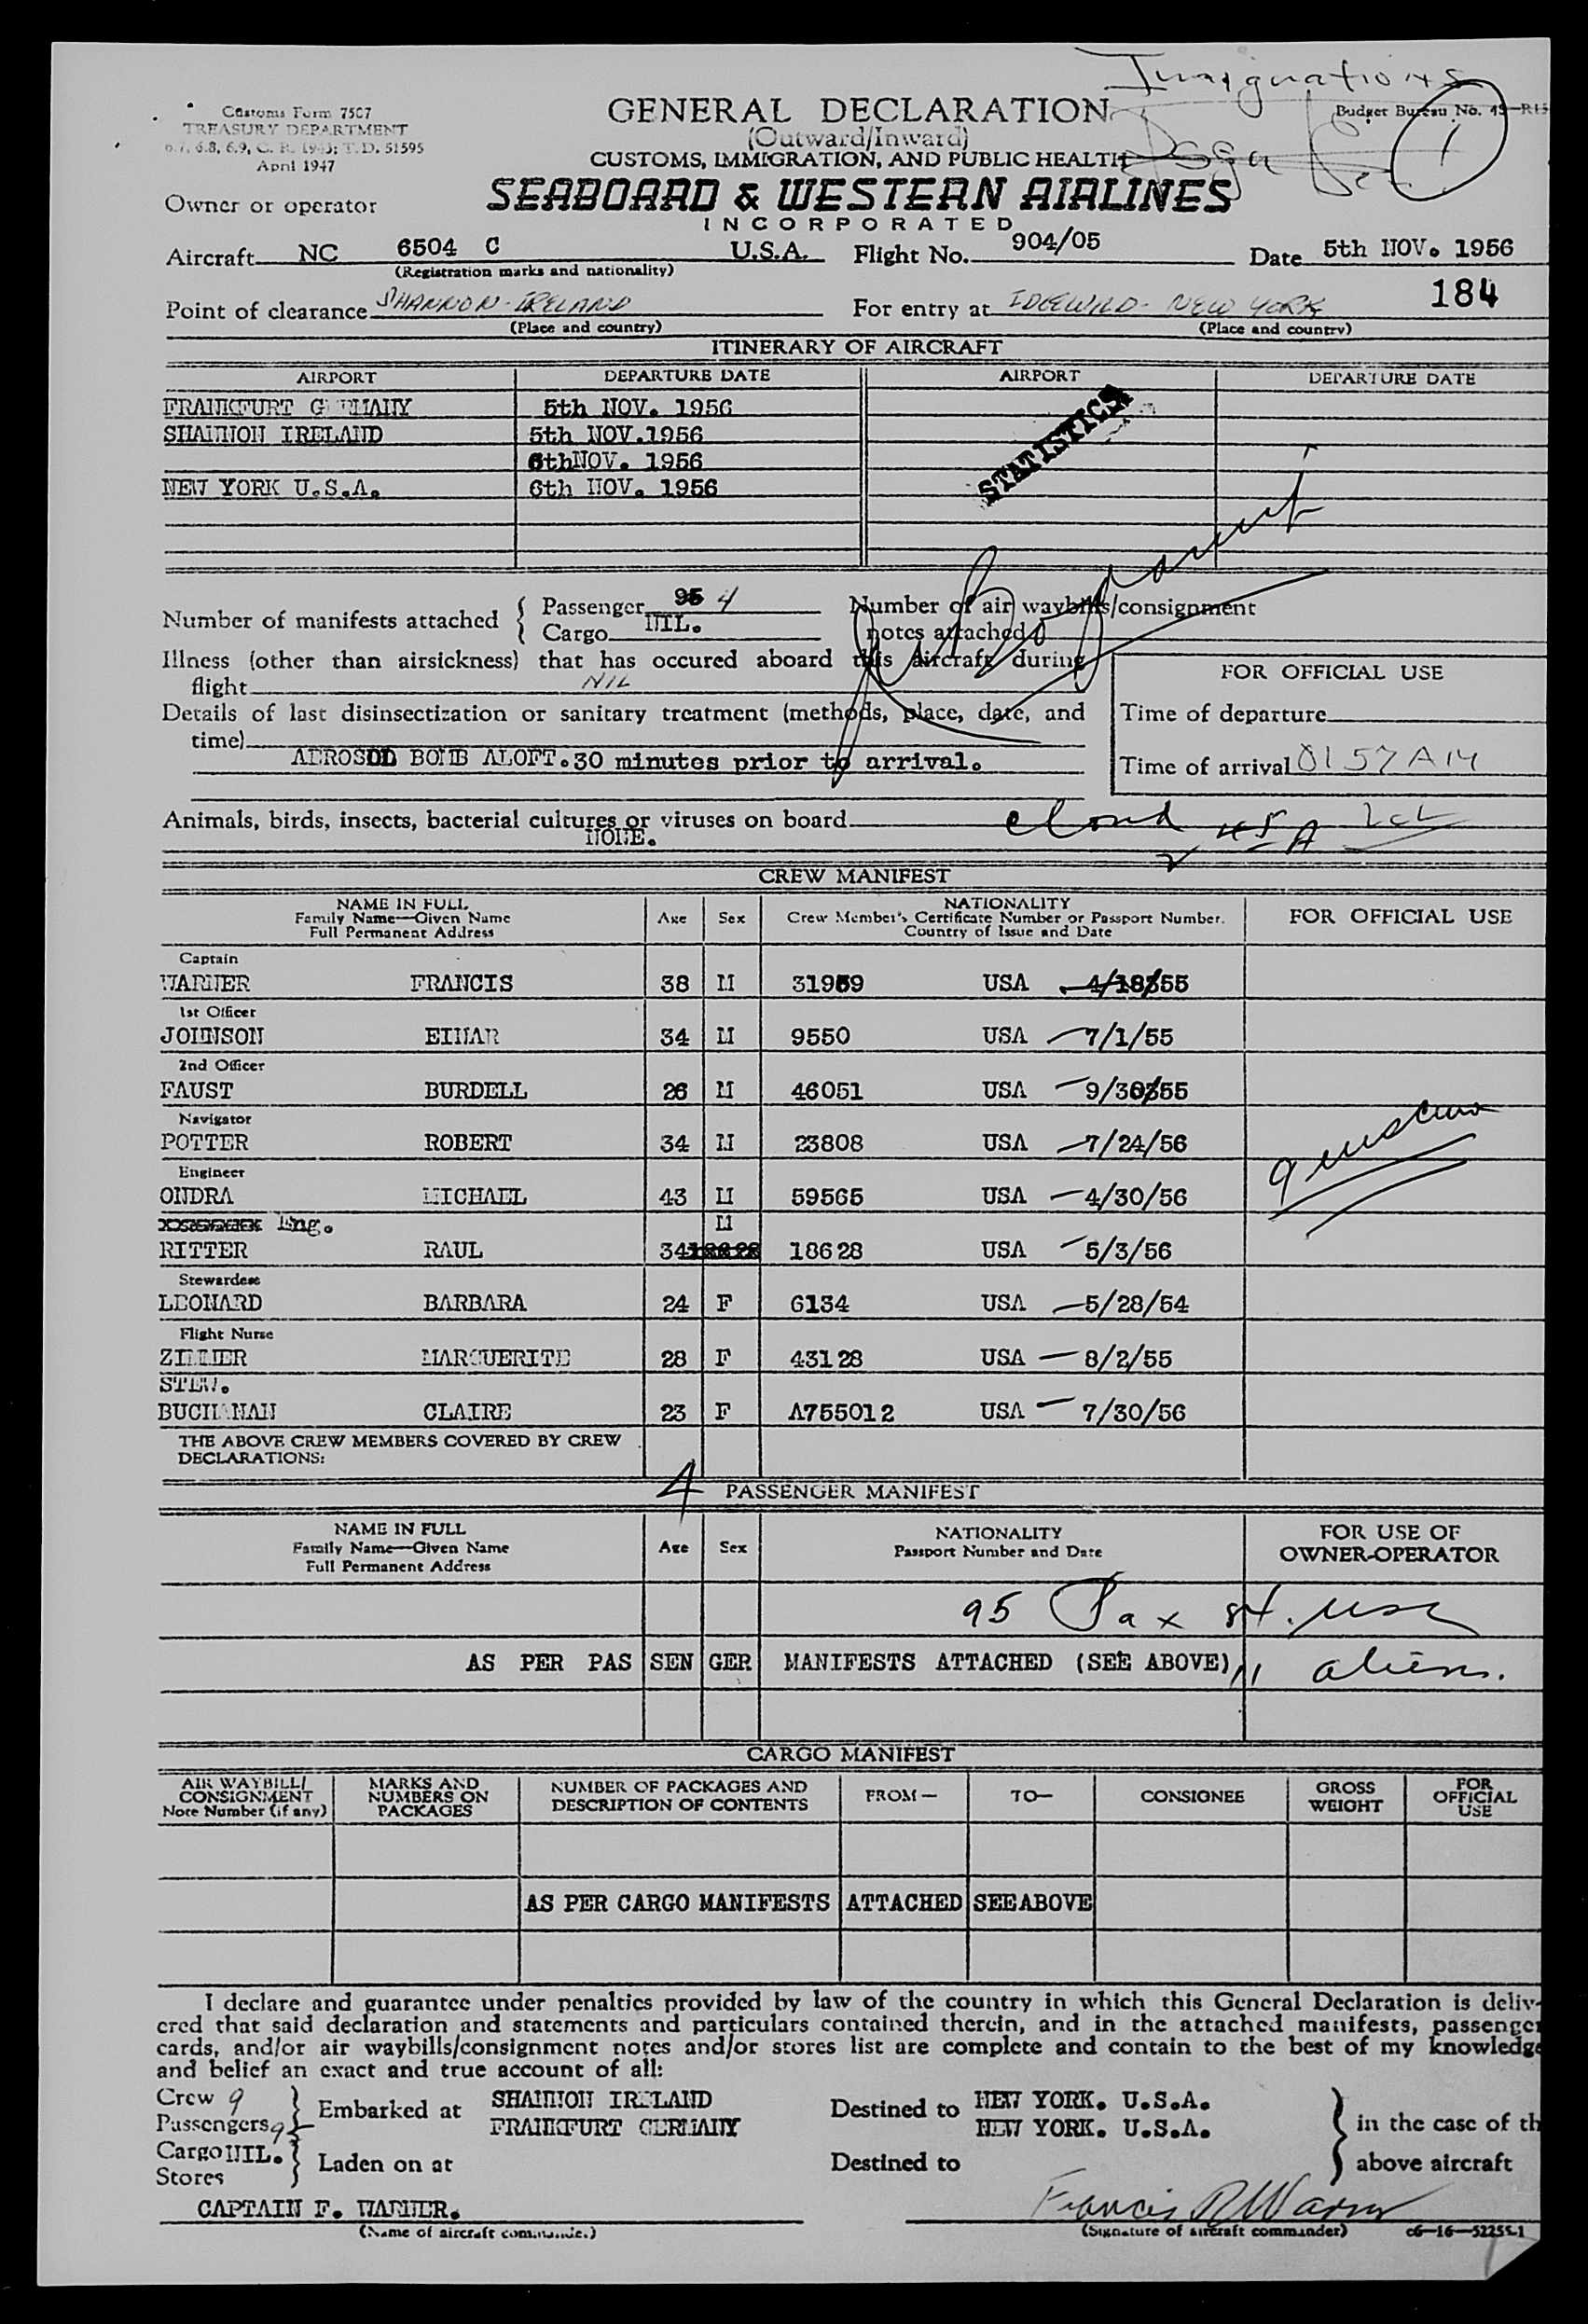 Customs Form 7507
TREASURY DEPARTMENT
6.7, 6.8, 6.9, C. R. 1943; T. D. 51595
April 1947
Immigrations
GENERAL DECLARATION
(Outward/Inward)
CUSTOMS, IMMIGRATION, AND PUBLIC HEALTH
Budget Bureau No. 43-R15
1
Owner or operator
SEABOARD & WESTERN AIRLINES
INCORPORATED
Aircraft NC 6504 C U.S.A. Flight No. 904/05 Date 5th NOV. 1956
(Registration marks and nationality)
184
Point of clearance SHANNON - IRELAND For entry at IDLEWILD - NEW YORK
(Place and country) (Place and country)
ITINERARY OF AIRCRAFT
AIRPORT DEPARTURE DATE AIRPORT DEPARTURE DATE
FRANKFURT GERMANY 5th NOV. 1956
SHANNON IRELAND 5th NOV.1956
6thNOV. 1956
NEW YORK U.S.A. 6th NOV. 1956
STATISTICS
Number of manifests attached { Passenger 95 4
Cargo NIL.
Number of air waybills/consignment
notes attached 0
Illness (other than airsickness) that has occured aboard this aircraft during
flight NIL
FOR OFFICIAL USE
Details of last disinsectization or sanitary treatment (methods, place, date, and
time)
Time of departure
AEROSOL BOMB ALOFT.30 minutes prior to arrival.
Time of arrival 0157 AM
Animals, birds, insects, bacterial cultures or viruses on board
NONE.
CREW MANIFEST
NAME IN FULL
Family Name—Given Name
Full Permanent Address
Age Sex
NATIONALITY
Crew Member's Certificate Number or Passport Number.
Country of Issue and Date
FOR OFFICIAL USE
Captain
WARNER FRANCIS 38 M 31959 USA 4/18/55
1st Officer
JOHNSON EINAR 34 M 9550 USA 7/1/55
2nd Officer
FAUST BURDELL 26 M 46051 USA 9/30/55
Navigator
POTTER ROBERT 34 M 23808 USA 7/24/56
Engineer
ONDRA MICHAEL 43 M 59565 USA 4/30/56
Eng. M
RITTER RAUL 34 18628 USA 5/3/56
Stewardess
LEONARD BARBARA 24 F 6134 USA 5/28/54
Flight Nurse
ZILLIER MARGUERITE 28 F 43128 USA 8/2/55
STEW.
BUCHANAN CLAIRE 23 F A755012 USA 7/30/56
THE ABOVE CREW MEMBERS COVERED BY CREW
DECLARATIONS:
4 PASSENGER MANIFEST
NAME IN FULL
Family Name—Given Name
Full Permanent Address
Age Sex
NATIONALITY
Passport Number and Date
FOR USE OF
OWNER-OPERATOR
95 Pax
AS PER PAS SEN GER MANIFESTS ATTACHED (SEE ABOVE) 11 aliens.
CARGO MANIFEST
AIR WAYBILL/
CONSIGNMENT
Note Number (if any)
MARKS AND
NUMBERS ON
PACKAGES
NUMBER OF PACKAGES AND
DESCRIPTION OF CONTENTS
FROM— TO— CONSIGNEE
GROSS
WEIGHT
FOR
OFFICIAL
USE
AS PER CARGO MANIFESTS ATTACHED SEE ABOVE
I declare and guarantee under penalties provided by law of the country in which this General Declaration is deliv-
ered that said declaration and statements and particulars contained therein, and in the attached manifests, passenger
cards, and/or air waybills/consignment notes and/or stores list are complete and contain to the best of my knowledge
and belief an exact and true account of all:
Crew 9
Passengers
Embarked at SHANNON IRELAND Destined to NEW YORK. U.S.A.
FRANKFURT GERMANY NEW YORK. U.S.A.
in the case of th
Cargo NIL.
Stores
Laden on at Destined to above aircraft
CAPTAIN F. WARNER. Francis R Warner
(Name of aircraft commander) (Signature of aircraft commander) c6—16—52255-1